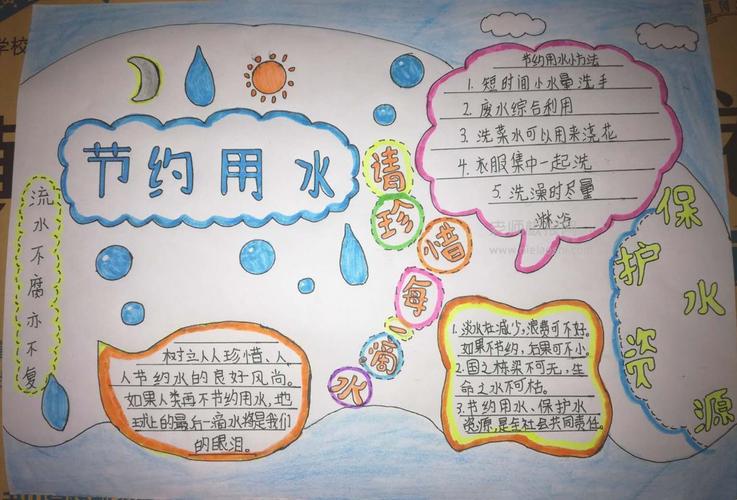 节约用水
流水不腐亦不复
请珍惜每一滴水
节约用水小方法
1. 短时间小水量洗手
2. 废水综合利用
3. 洗菜水可以用来浇花
4. 衣服集中一起洗
5. 洗澡时尽量
淋浴
保护水资源
树立人人珍惜、人
人节约水的良好风尚。
如果人类再不节约用水,地
球上的最后一滴水将是我们
的眼泪。
1. 淡水在减少,浪费可不好。
如果不节约,后果可不小。
2. 国之栋梁不可无,生
命之水不可枯。
3. 节约用水、保护水
资源,是全社会共同责任。